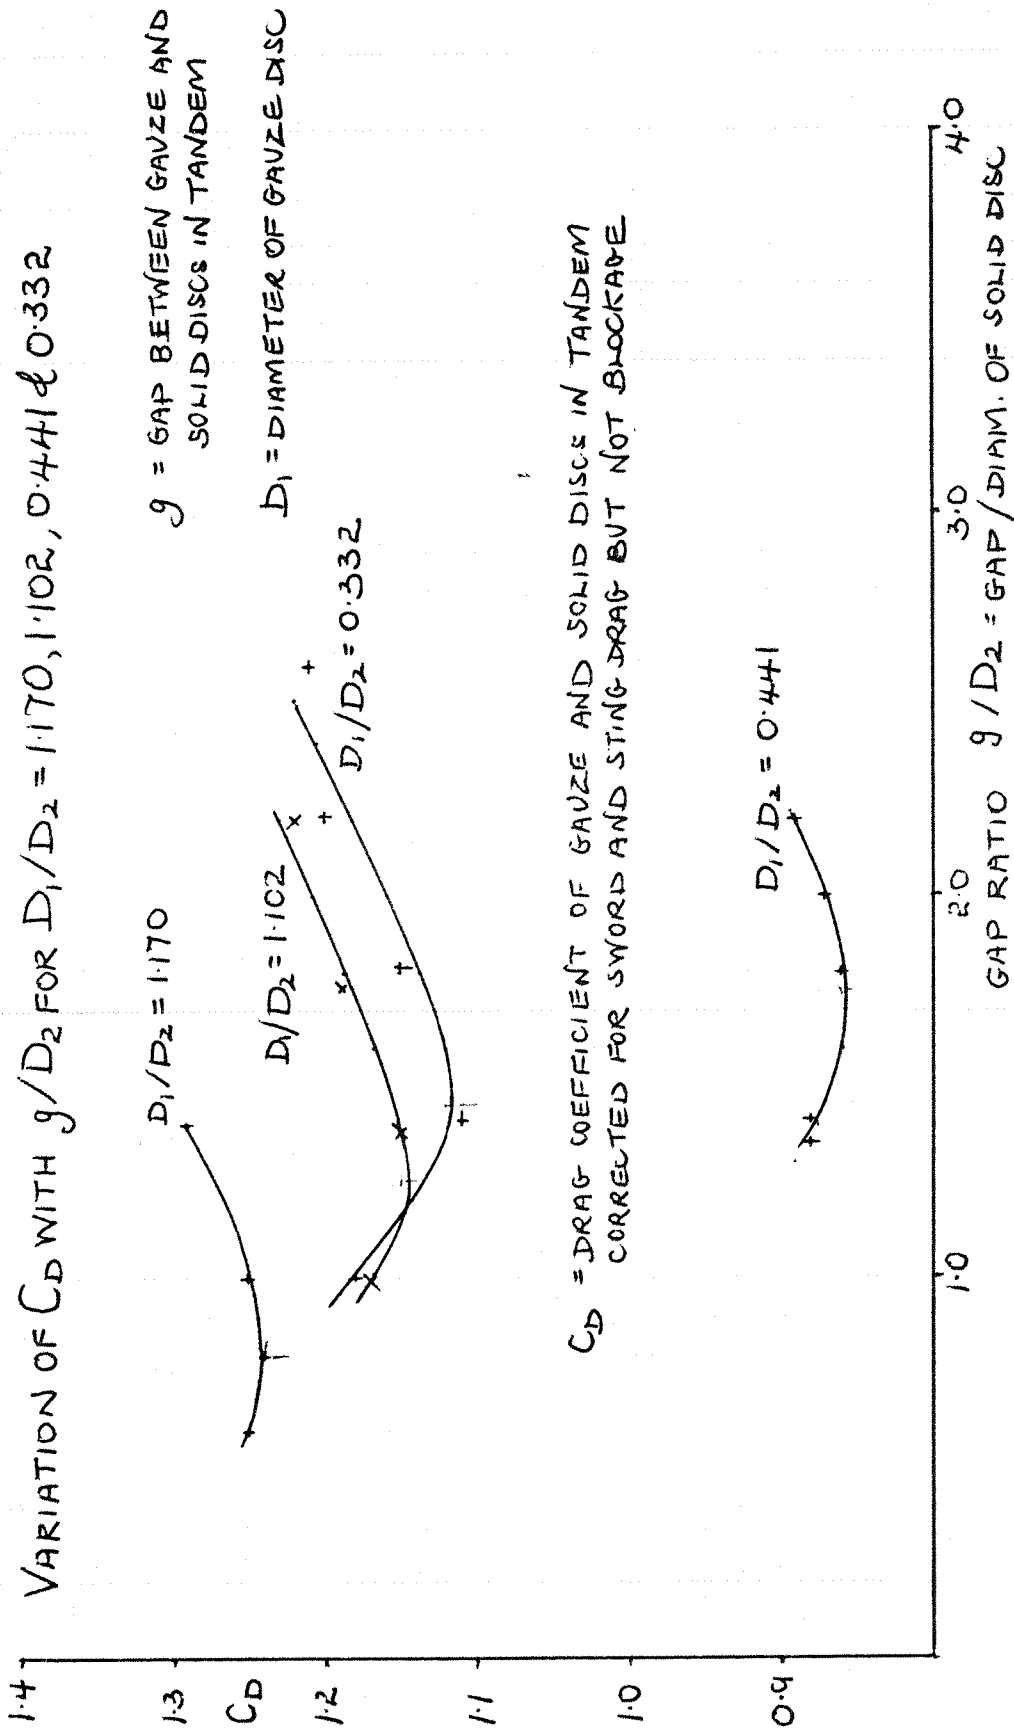 VARIATION OF CD WITH g/D2 FOR D1/D2 = 1.170, 1.102, 0.441 & 0.332
g = GAP BETWEEN GAUZE AND
SOLID DISCS IN TANDEM
D1 = DIAMETER OF GAUZE DISC
1.4
1.3
CD
1.2
1.1
1.0
0.9
D1/D2 = 1.170
D1/D2 = 1.102
D1/D2 = 0.332
CD = DRAG COEFFICIENT OF GAUZE AND SOLID DISCS IN TANDEM
CORRECTED FOR SWORD AND STING DRAG BUT NOT BLOCKAGE
D1/D2 = 0.441
1.0
2.0
3.0
4.0
GAP RATIO g/D2 = GAP/DIAM. OF SOLID DISC